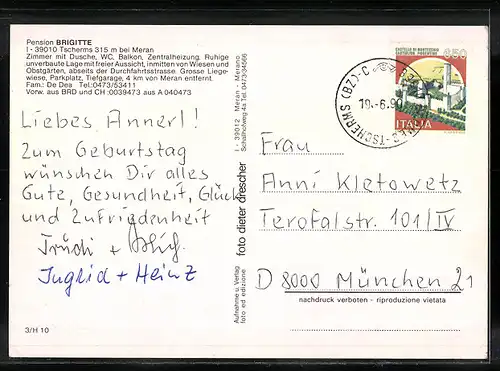 Pension BRIGITTE
I - 39010 Tscherms 315 m bei Meran
Zimmer mit Dusche, WC, Balkon, Zentralheizung. Ruhige
unverbaute Lage mit freier Aussicht, inmitten von Wiesen und
Obstgärten, abseits der Durchfahrtsstrasse. Grosse Liege-
wiese, Parkplatz, Tiefgarage, 4 km von Meran entfernt.
Fam.: De Dea Tel.:0473/53411
Vorw. aus BRD und CH :0039473 aus A 040473
Liebes Annerl!
Zum Geburtstag
wünschen Dir alles
Gute, Gesundheit, Glück
und Zufriedenheit
Trudi +
Inglid + Heinz
3/H 10
I - 39012 Meran - Merano
Schallhofweg 4a Tel. 0473/34566
foto dieter drescher
Aufnahme u. Verlag
foto ed edizione
CASTELLO DI MONTECCHIO
CASTIGLION FIORENTINO
450
ITALIA
TSCHERMS (BZ)
19.-6.90
Frau
Anni Kletowetz
Terofalstr. 101/IV
D 8000 München 21
nachdruck verboten - riproduzione vietata